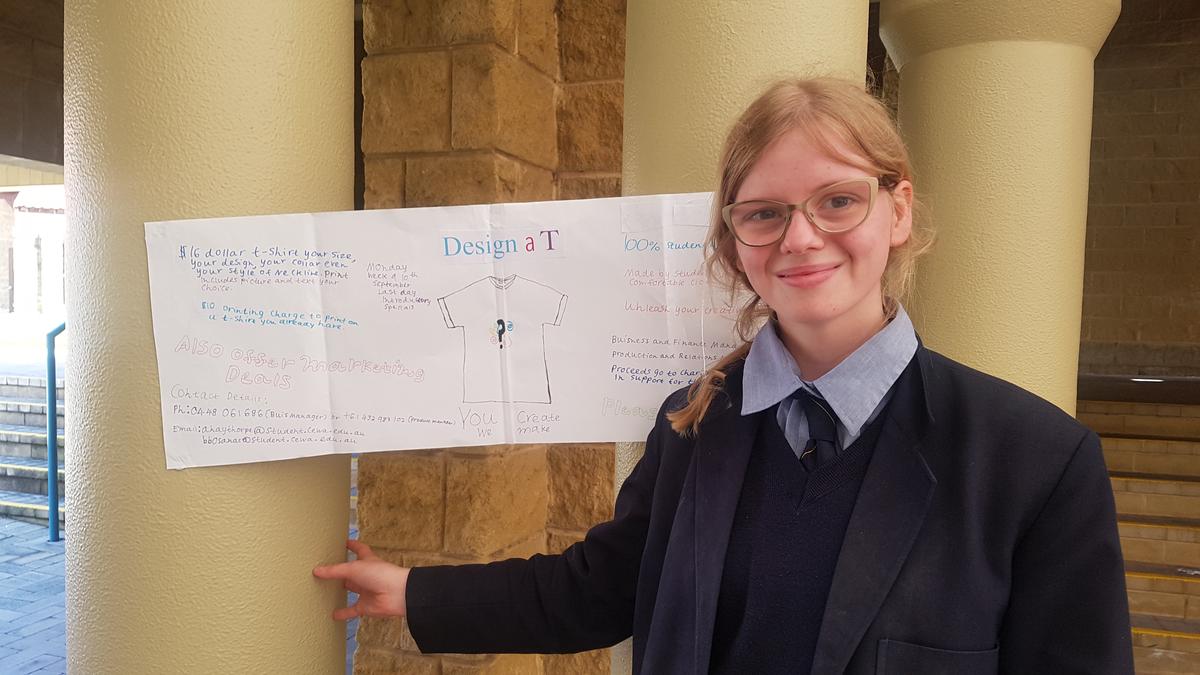 $16 dollar t-shirt your size,
your design, your collar even
your style of neckline. Print
includes picture and text your
choice.
$10 printing charge to print on
a t-shirt you already have.
Also offer marketing
Deals
Contact Details:
Email: ahaythorpe@student.cewa.edu.au
bbosanac@student.cewa.edu.au
Monday
week 9 10th
September
Last day
Introductory
specials
Design a T
?
You Create
We make
100% studen
Made by stude
comfortable clo
Unleash your creativ
Buisness and Finance Mana
production and Relations M
Proceeds go to char
in support for t
Pleas